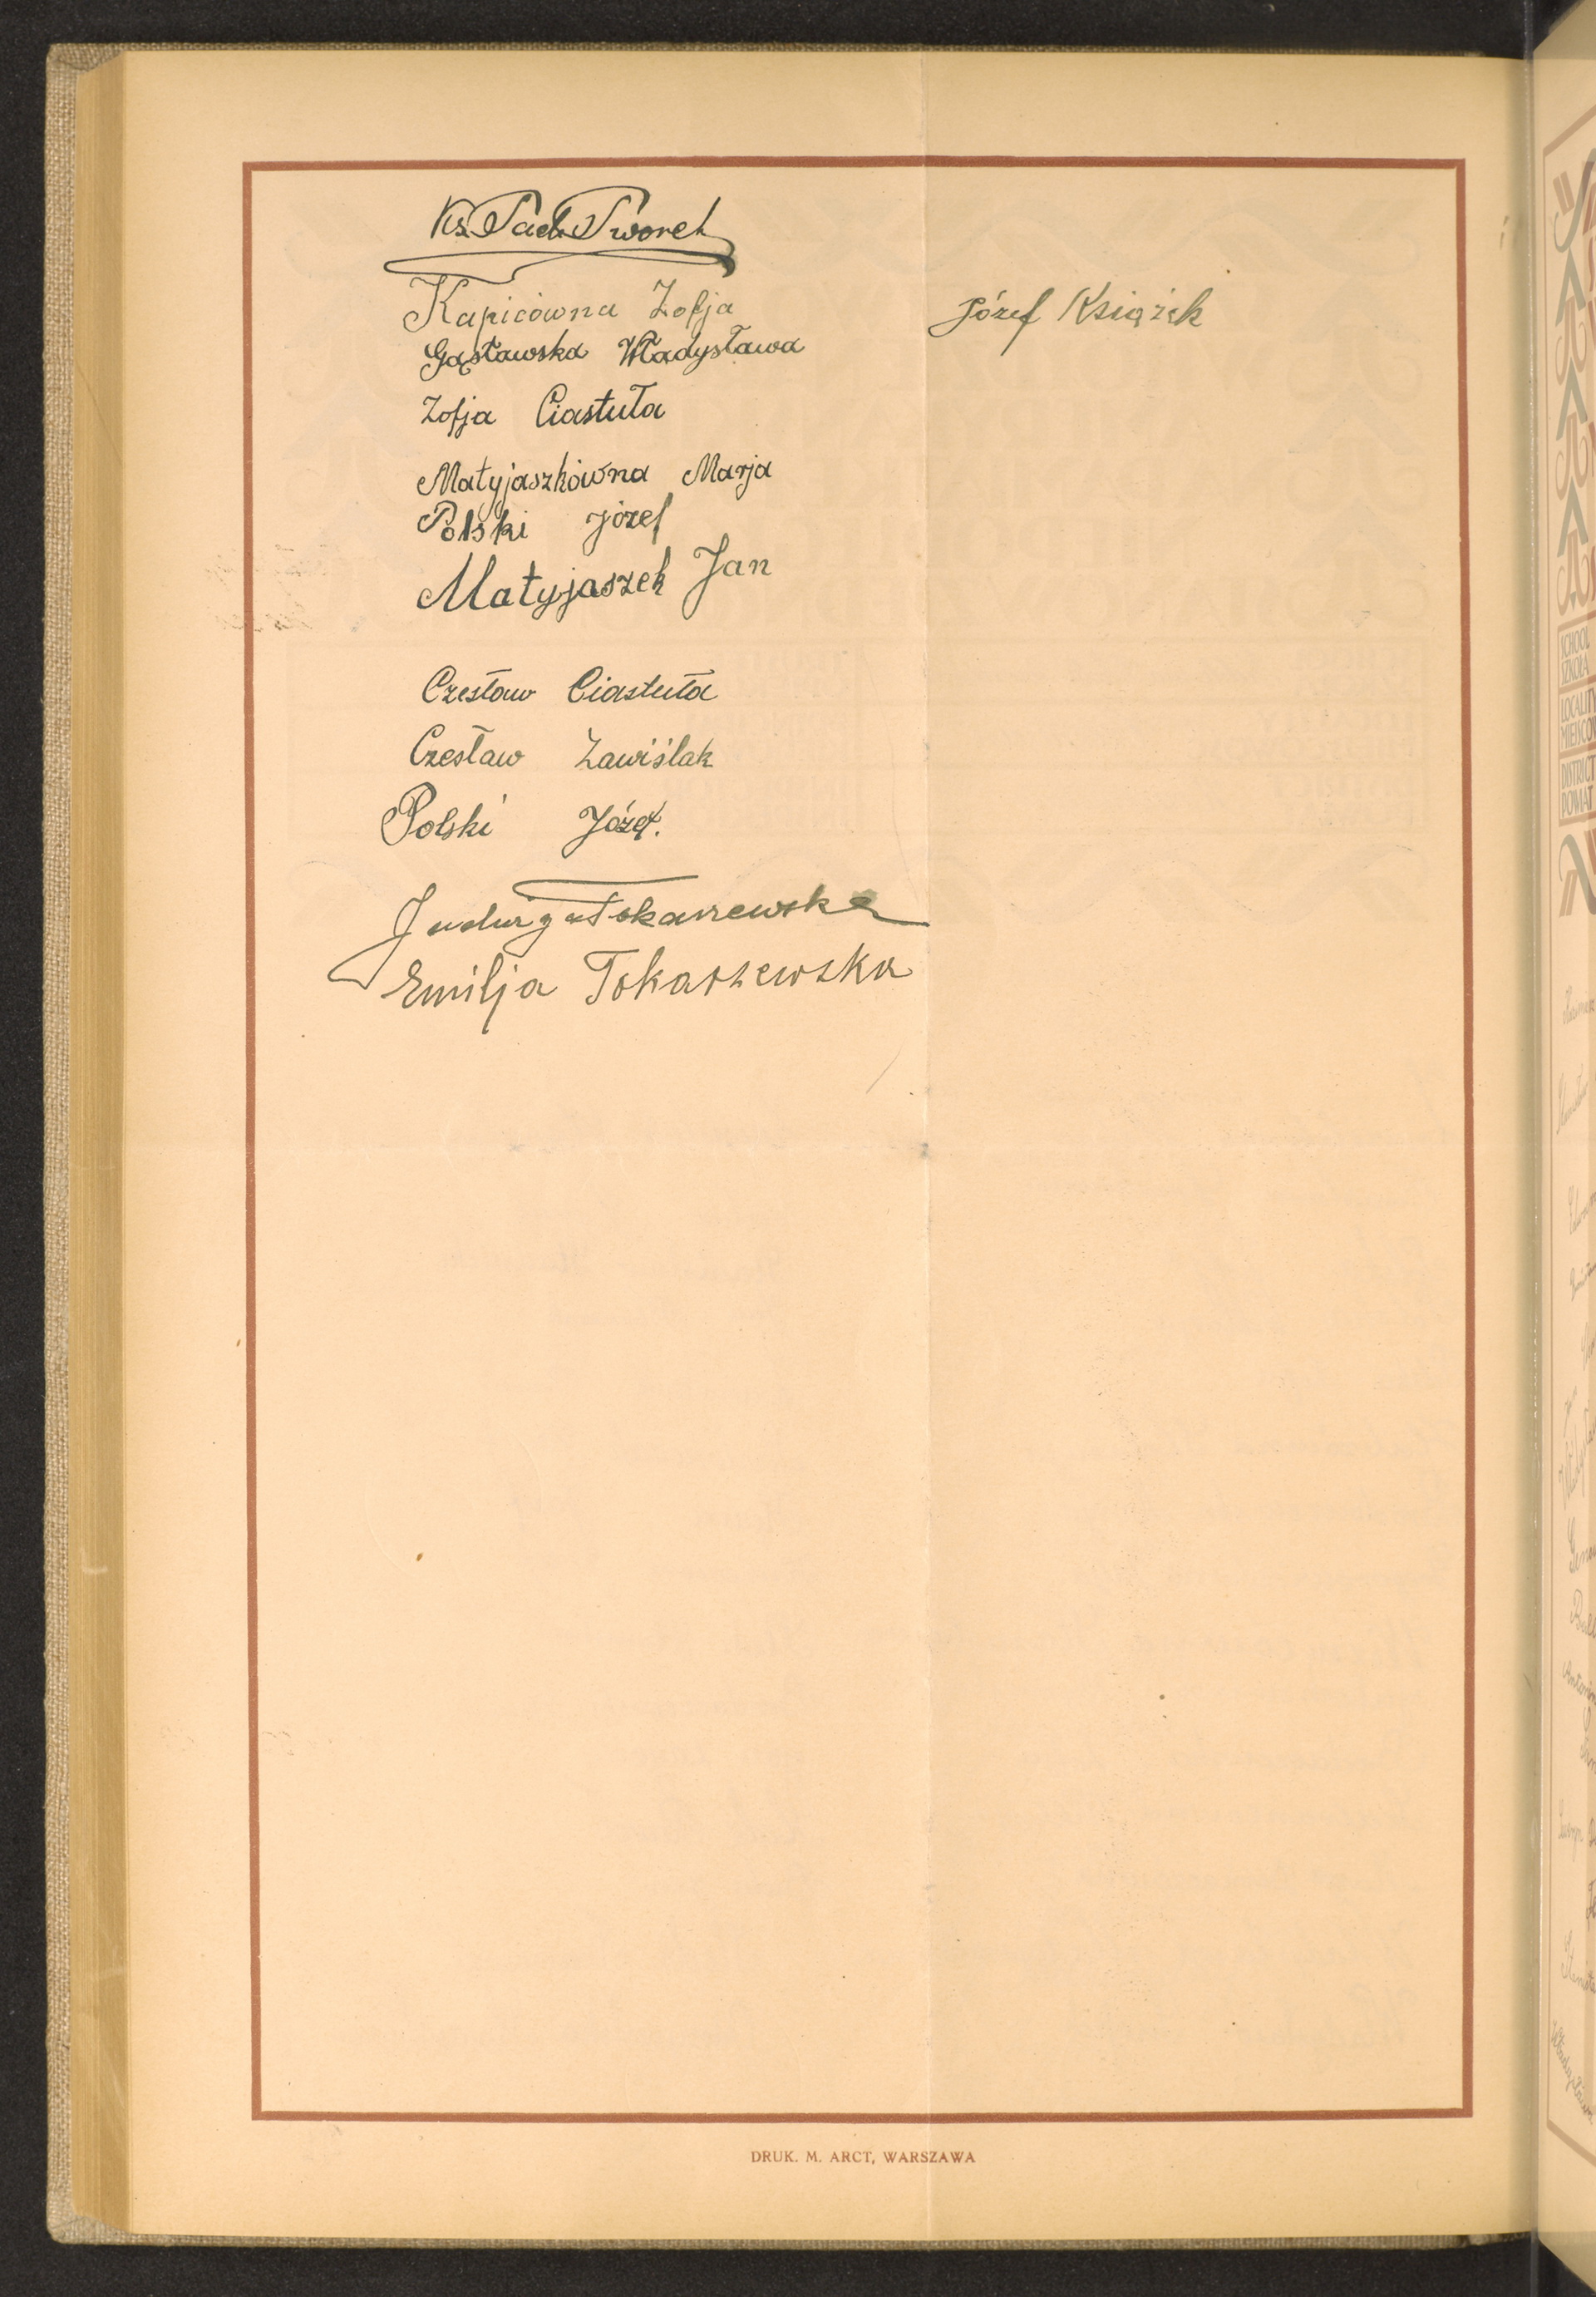 Ks. Tad. Tworek
Kapicówna Zofja
Gąsławska Władysława
Zofja Ciastuła
Matyjaszkówna Marja
Polski Józef
Matyjaszek Jan
Czesław Ciastuła
Czesław Zawiślak
Polski Józef.
Jadwiga Tokarzewska
Emilja Tokarzewska
Józef Książek
DRUK. M. ARCT, WARSZAWA
SCHOOL
SZKOŁA
DISTRICT